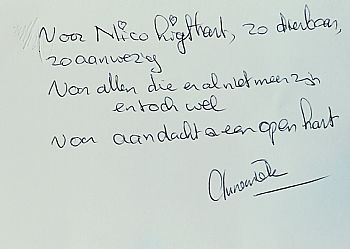 Voor Nico Ligthart, zo dierbaar,
zo aanwezig
Voor allen die er al niet meer zijn
en toch wel
Voor aandacht & een open hart